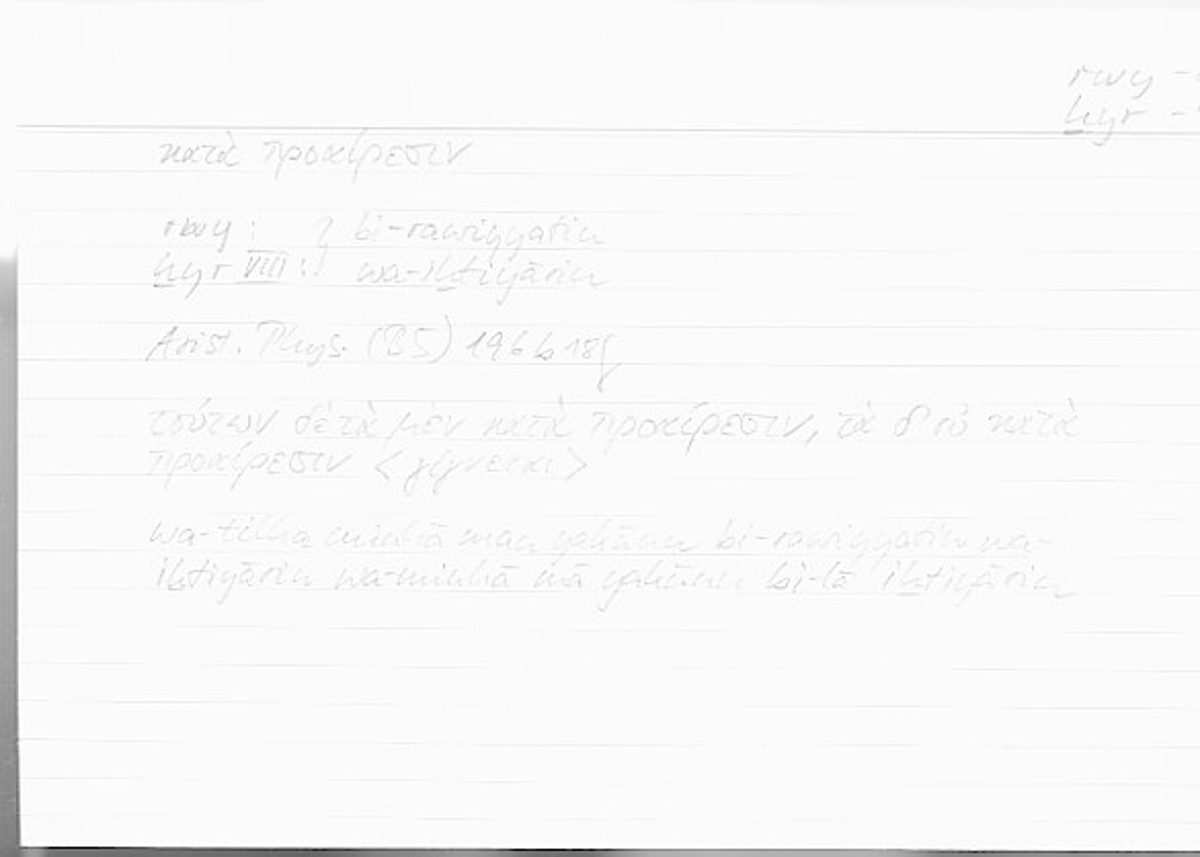 rwy -
ḫyr -
κατὰ προαίρεσιν
rwy : } bi-rawiyyatin
ḫyr VIII : } wa-iḫtiyārin
Arist. Phys. (B5) 196b18f
τούτων δὲ τὰ μὲν κατὰ προαίρεσιν, τὰ δ' οὐ κατὰ
προαίρεσιν <γίγνεται>
wa-tilka minhā man yakūnu bi-rawiyyatin wa-
iḫtiyārin wa-minhā mā yakūnu bi-lā iḫtiyārin